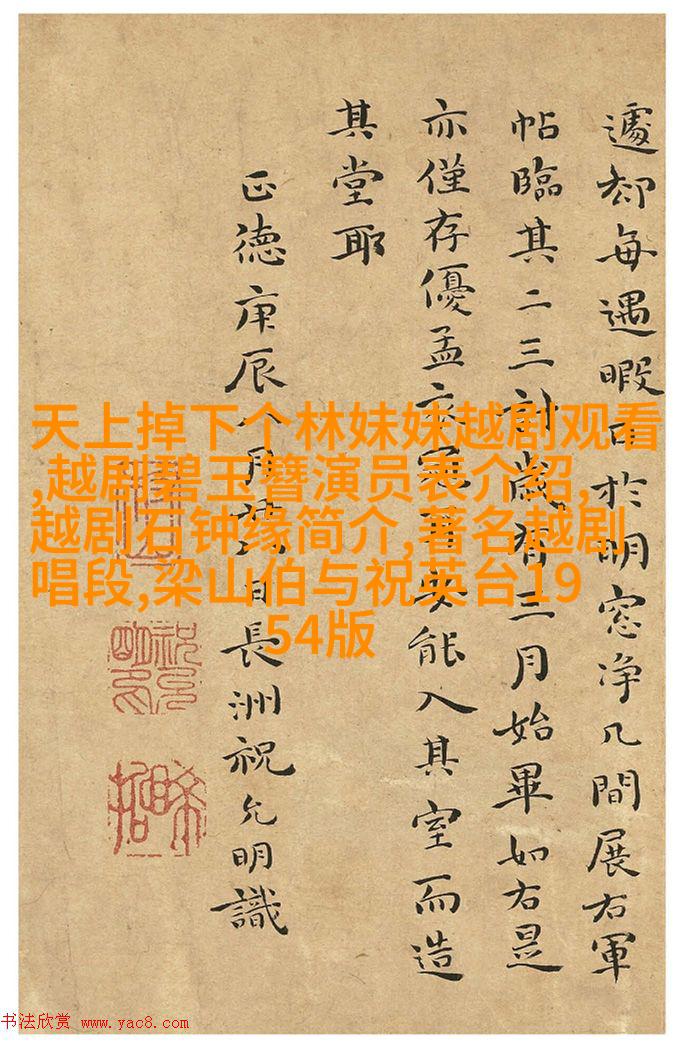 遽却每遇暇日於明窓净几間展右軍
帖臨其二三計歲有三月始畢如右是
亦僅存優孟衣冠安能入其室而造
其堂耶
正德庚辰八月日長洲祝允明識
天上掉下个林妹妹越剧观看
,越剧碧玉簪演员表介绍,
越剧石钟缘简介,著名越剧
唱段,梁山伯与祝英台19
54版
书法欣赏 www.yac8.com